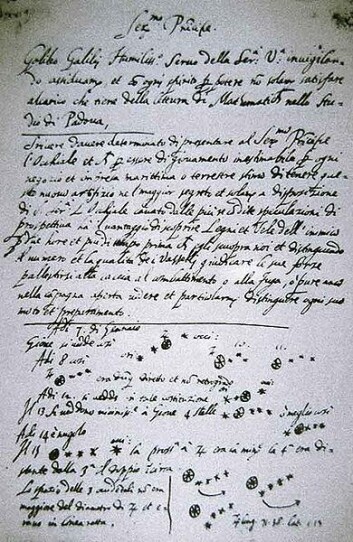 Ser.mo Principe.
Galileo Galilej Humiliss.o Servo della Ser.a V.a invigilan-
do assiduamte, et co ogni spirito p potere no solam satisfare
alcarico che tiene della lettura di Mathematiche nello Stu-
dio di Padova,
Scrivere d'avere determinato di presentare al Ser.mo Principe
l'Occhiale et p essere di giovamento inestimabile p ogni
negozio et impresa marittima o terrestre stimo di tenere que-
sto nuovo artifizio ne l maggior segreto et solam a disposizione
di S. Ser.tà L'Occhiale cavato dalle più recondite speculazioni di
prospettiva ha il vantaggio di scoprire Legni et Vele dell'inimico
p due hore et più di tempo prima ch egli scuopra noi et distinguendo
il numero et la qualità de i Vasselli giudicare le sue forze
pallestirsi alla caccia al combattimento o alla fuga, o pure anco
nella campagna aperta vedere et particolarm distinguere ogni suo
moto et preparamento.
Adi 7. di Gennaio
Giove si vede così
Adi 8 così
era dirette et no retrogrado
Adi 12. si vedde in tale costituzione
Il 13 si veddono vicinissime a Giove 4 stelle meglio così
Adi 14 è nugolo
Il 15 la pross.a a 4 era la min.a la 4.a era di-
stante dalla 3.a il doppio circa
Lo spazio delle 3 occidentali no era
maggiore del diametro di 4 et e-
rano in linea retta.